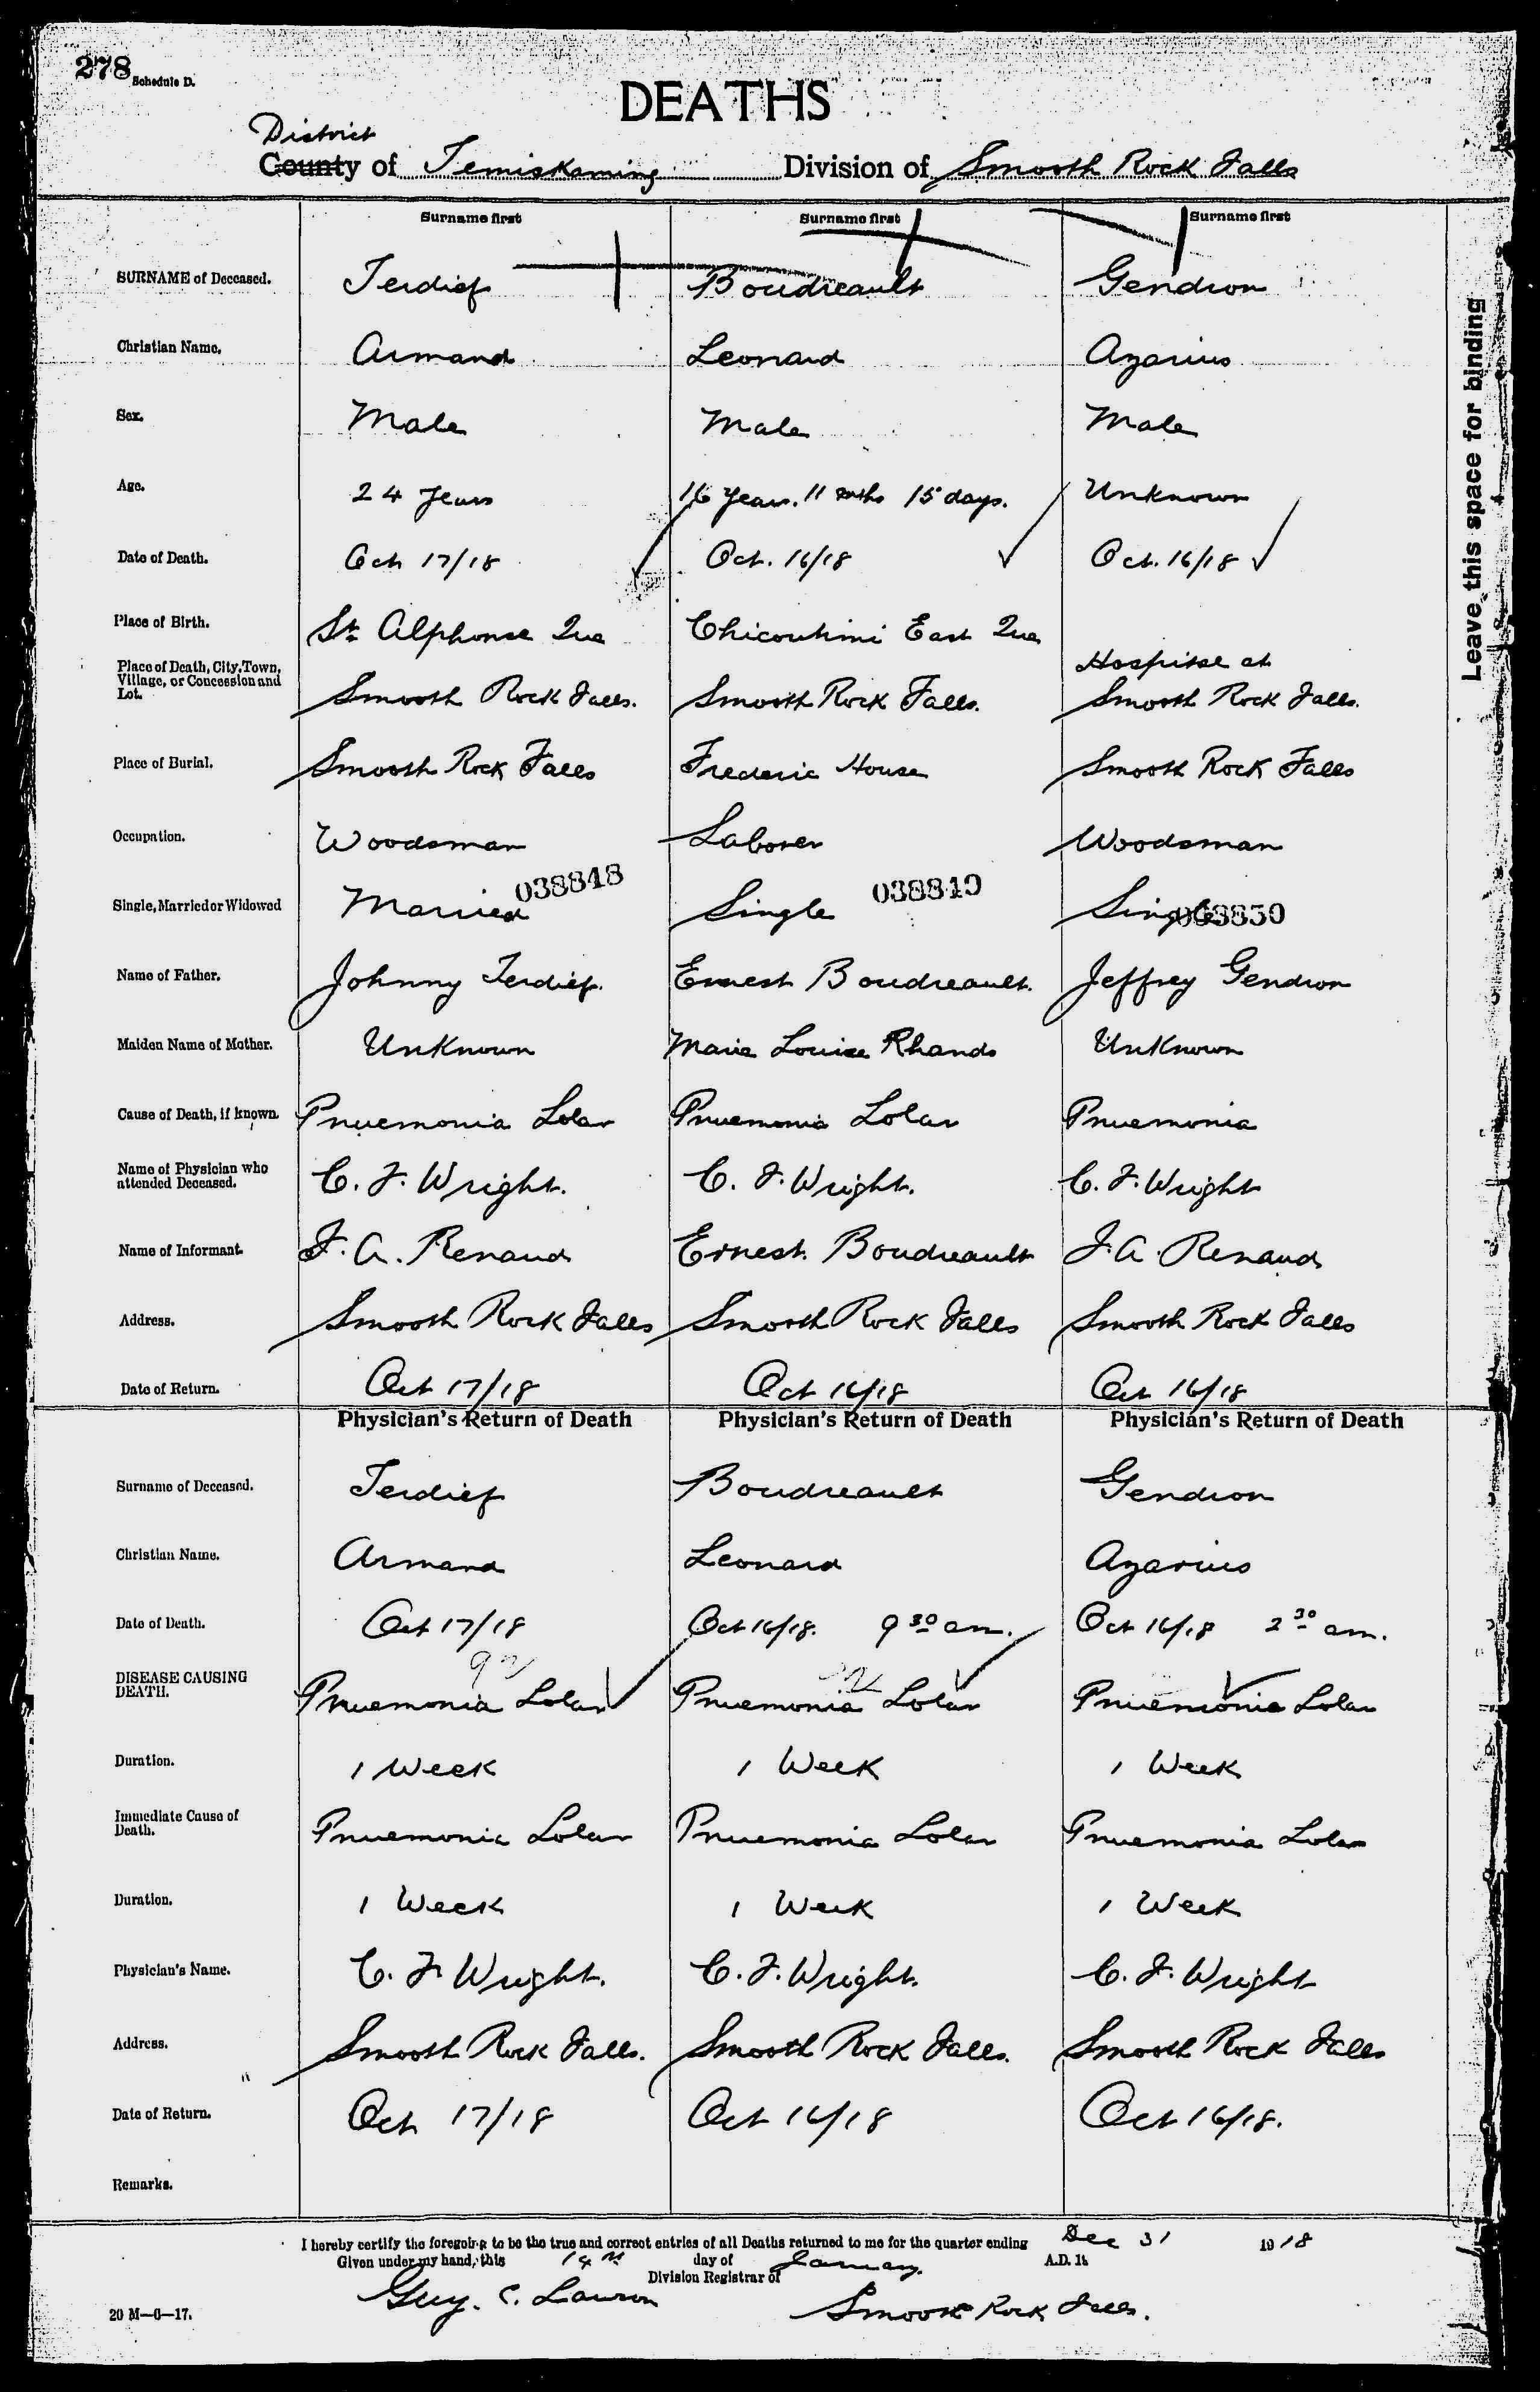 278 Schedule D.
DEATHS
District
County of Temiskaming Division of Smooth Rock Falls
Surname first Surname first Surname first
SURNAME of Deceased. Terdief Boudreault Gendron
Christian Name. Armand Leonard Azarius
Sex. Male Male Male
Age. 24 Years 16 Years. 11 mths 15 days. Unknown
Date of Death. Oct 17/18 Oct. 16/18 Oct. 16/18
Place of Birth. St Alphonse Que Chicoutimi East Que
Place of Death, City, Town, Village, or Concession and Lot. Smooth Rock Falls. Smooth Rock Falls. Hospital at Smooth Rock Falls.
Place of Burial. Smooth Rock Falls Frederic House Smooth Rock Falls
Occupation. Woodsman Laborer Woodsman
038848 038849 038850
Single, Married or Widowed Married Single Single
Name of Father. Johnny Terdief. Ernest Boudreault. Jeffrey Gendron
Maiden Name of Mother. Unknown Marie Louise Rhands Unknown
Cause of Death, if known. Pnuemonia Lobar Pnuemonia Lobar Pnuemonia
Name of Physician who attended Deceased. C. F. Wright. C. F. Wright. C. F. Wright
Name of Informant. J. A. Renaud Ernest. Boudreault J. A. Renaud
Address. Smooth Rock Falls Smooth Rock Falls Smooth Rock Falls
Date of Return. Oct 17/18 Oct 16/18 Oct 16/18
Physician's Return of Death Physician's Return of Death Physician's Return of Death
Surname of Deceased. Terdief Boudreault Gendron
Christian Name. Armand Leonard Azarius
Date of Death. Oct 17/18 Oct 16/18. 9 30 am. Oct 16/18 2 30 am.
92
DISEASE CAUSING DEATH. Pnuemonia Lobar Pnuemonia Lobar Pnuemonia Lobar
Duration. 1 Week 1 Week 1 Week
Immediate Cause of Death. Pnuemonia Lobar Pnuemonia Lobar Pnuemonia Lobar
Duration. 1 Week 1 Week 1 Week
Physician's Name. C. F. Wright. C. F. Wright. C. F. Wright
Address. Smooth Rock Falls. Smooth Rock Falls. Smooth Rock Falls
Date of Return. Oct 17/18 Oct 16/18 Oct 16/18.
Remarks.
I hereby certify the foregoing to be the true and correct entries of all Deaths returned to me for the quarter ending Dec 31 1918
Given under my hand, this 14th day of January. A.D. 19
Guy. C. Lawson Division Registrar of Smooth Rock Falls.
20 M—6—17.
Leave this space for binding